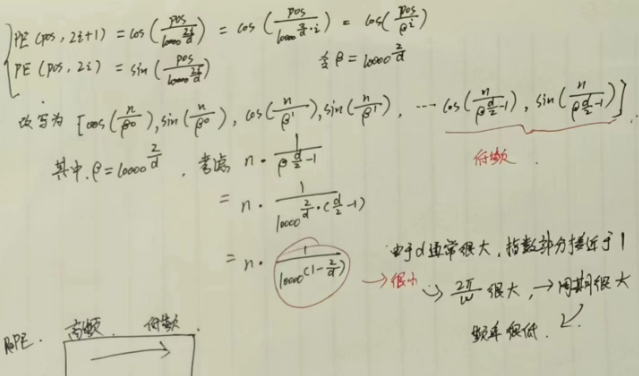 PE(pos, 2i+1) = cos(pos/10000^(2i/d)) = cos(pos/10000^(2/d·i)) = cos(pos/β^i)
PE(pos, 2i) = sin(pos/10000^(2i/d)) 令β = 10000^(2/d)
改写为 [cos(n/β^0), sin(n/β^0), cos(n/β^1), sin(n/β^1), ... cos(n/β^(d/2-1)), sin(n/β^(d/2-1))]
低频.
其中, β = 10000^(2/d), 考虑 n · 1/β^(d/2-1)
= n · 1/10000^(2/d·(d/2-1))
= n · 1/10000^(1-2/d) → 很小
由于d通常很大, 指数部分接近于1
→ 2π/ω 很大, → 周期很大
频率很低.
RoPE. 高频. 低频.